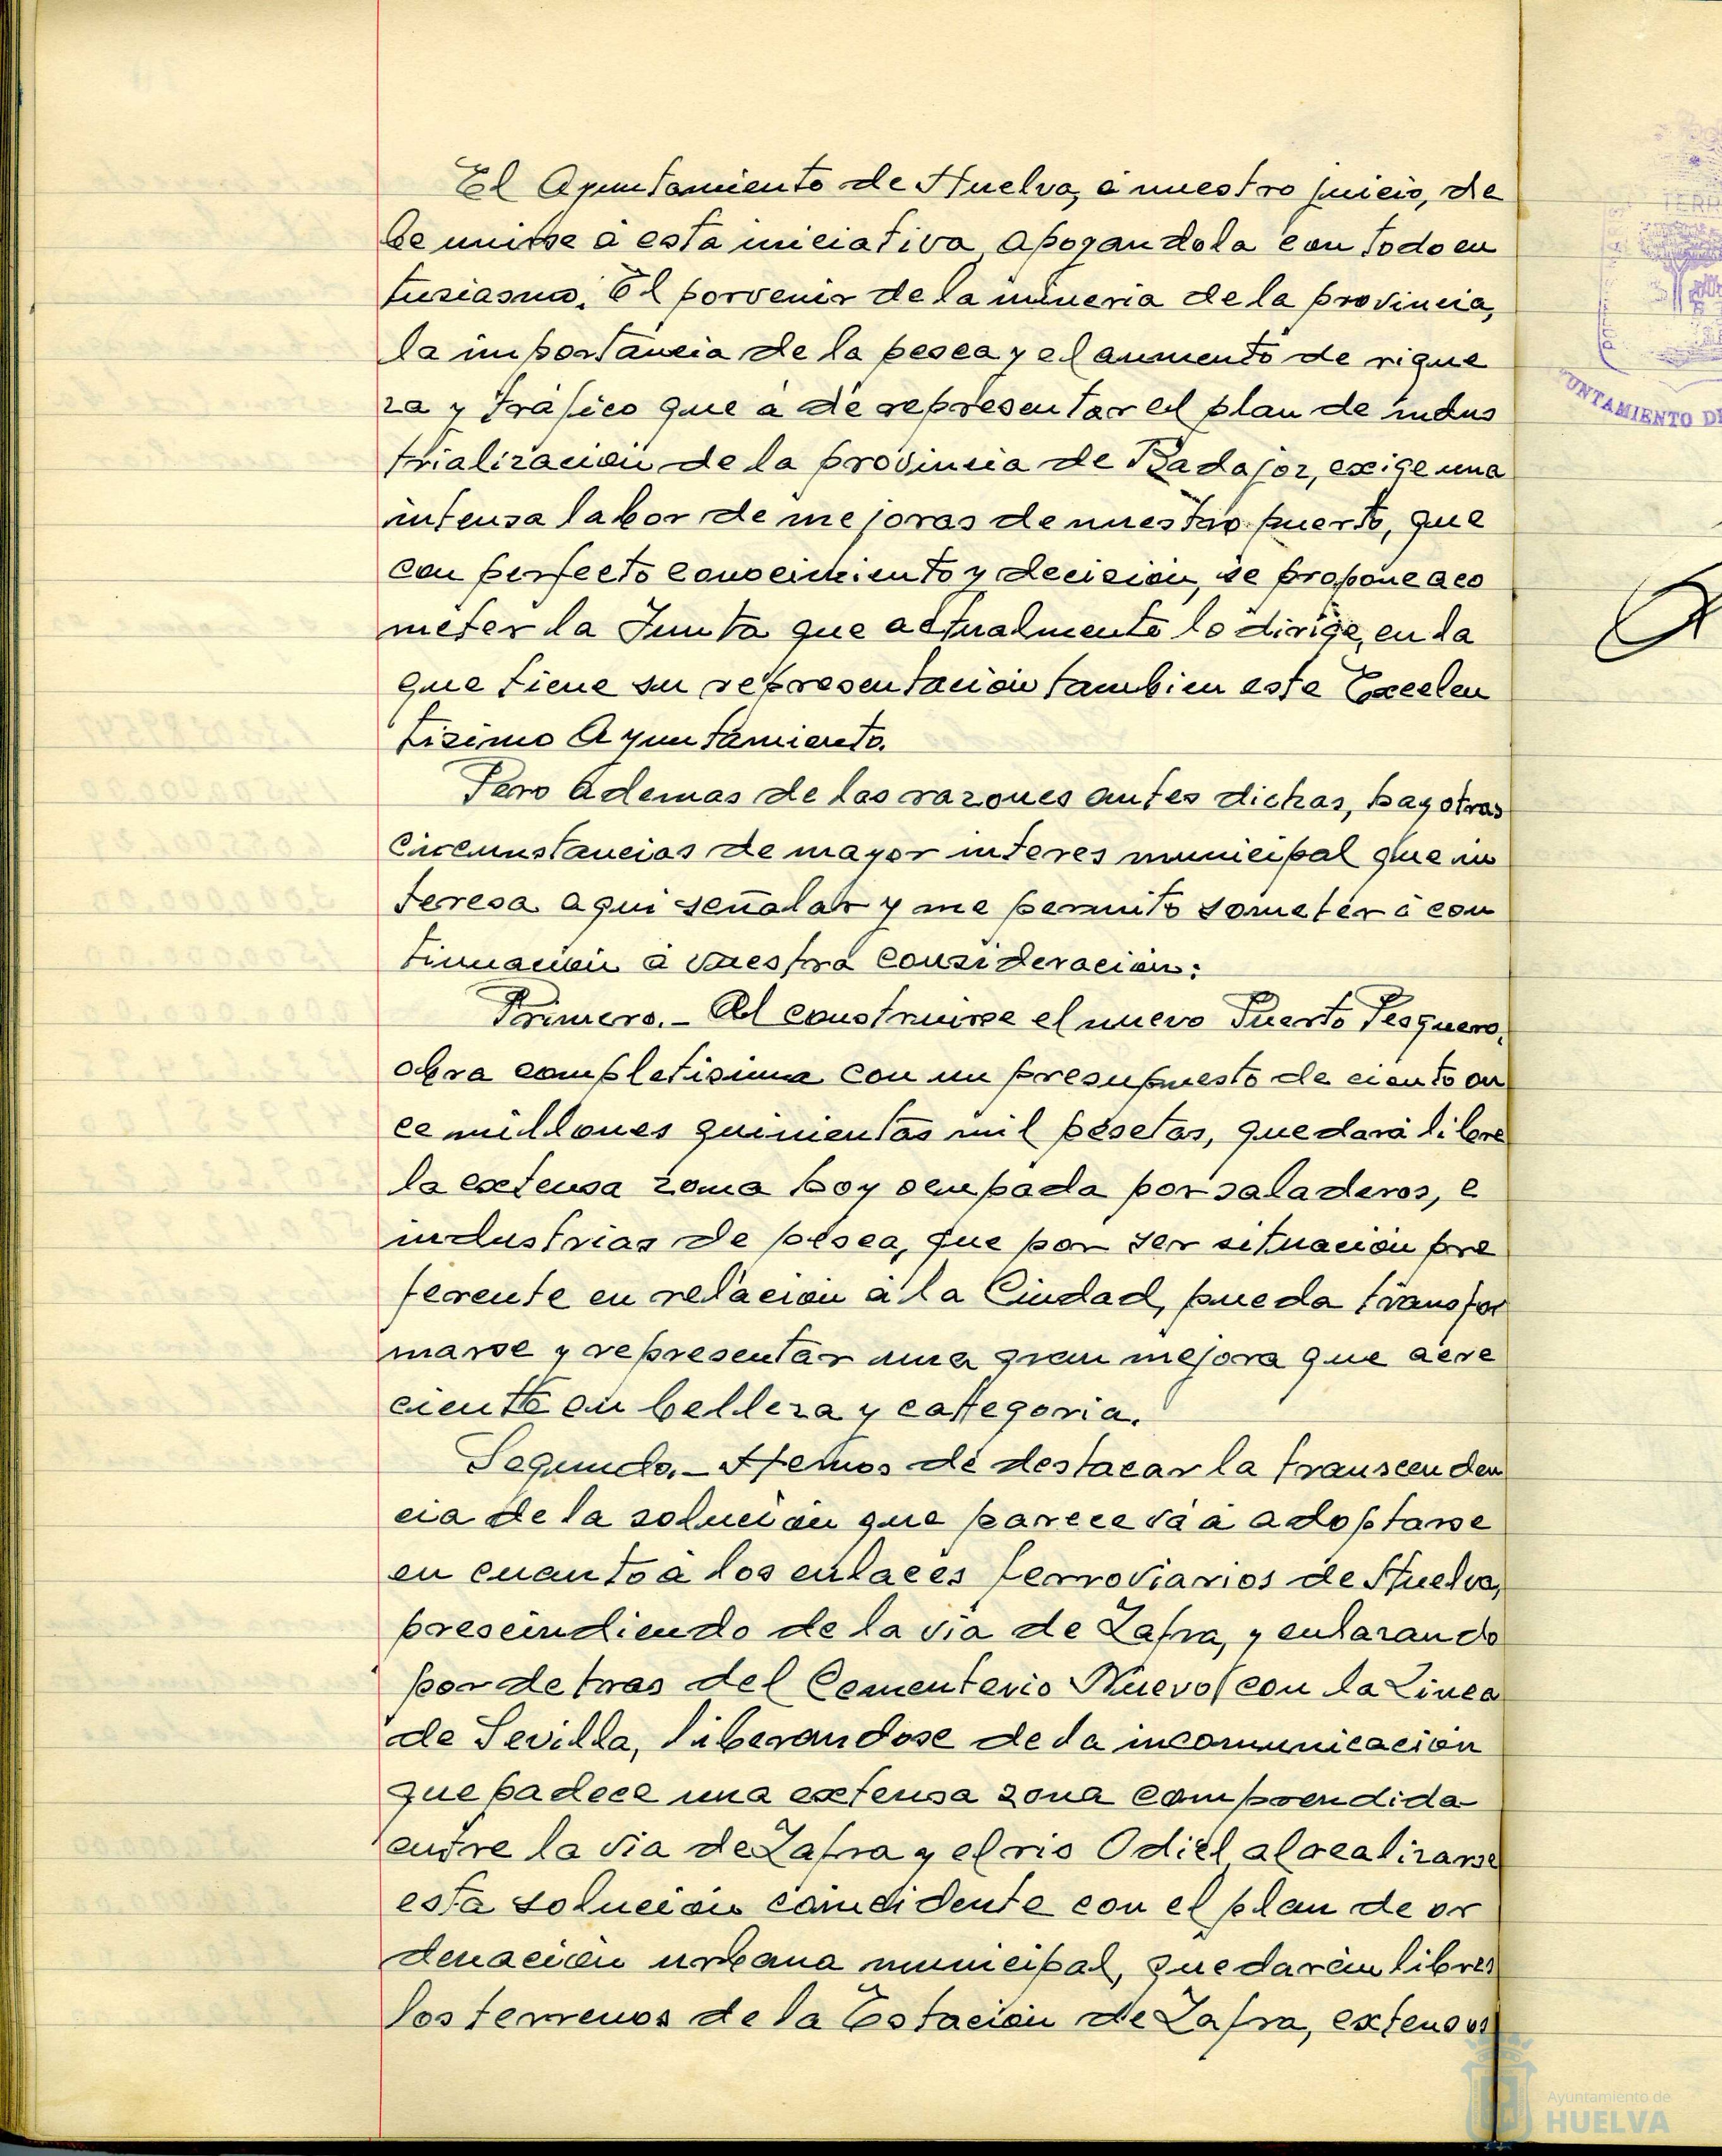 El Ayuntamiento de Huelva, á nuestro juicio, de
be unirse á esta iniciativa apoyandola con todo en
tusiasmo. El porvenir de la mineria de la provincia,
la importancia de la pesca y el aumento de rique
za y tráfico que á de representar el plan de indus
trialización de la provincia de Badajoz, exige una
intensa labor de mejoras de nuestro puerto, que
con perfecto conocimiento y decisión, se propone aco
meter la Junta que actualmente lo dirige, en la
que tiene su representación tambien este Excelen
tisimo Ayuntamiento.
Pero ademas de las razones antes dichas, hay otras
circumstancias de mayor interes municipal que in
teresa aqui señalar y me permito someter á con
tinuación á vuestra consideración:
Primero.- Al construirse el nuevo Puerto Pesquero,
obra completisima con un presupuesto de ciento on
ce millones quinientas mil pesetas, quedará libre
la extensa zona hoy ocupada por saladeros, e
industrias de pesca, que por ser situación pre
ferente en relación á la Ciudad, pueda transfor
marse y representar una gran mejora que acre
ciente en belleza y categoria.
Segundo.- Hemos de destacar la transcenden
cia de la solución que parece vá á adoptarse
en cuanto á los enlaces ferroviarios de Huelva,
prescindiendo de la via de Zafra, y enlazando
por detras del Cementerio Nuevo con la Linea
de Sevilla, liberandose de la incomunicación
que padece una extensa zona comprendida
entre la via de Zafra y el rio Odiel, al realizarse
esta solución coincidente con el plan de or
denación urbana municipal, quedarán libres
los terrenos de la Estación de Zafra, extensos
UNTAMIENTO DE
Ayuntamiento de
HUELVA